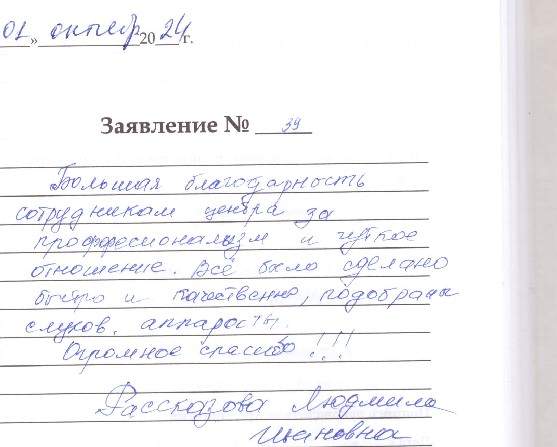 01 » октябр 2024 г.
Заявление № 39
Большая благодарность
сотрудникам центра за
профессионализм и чуткое
отношение. Всё было сделано
быстро и качественно, подобраны
слухов. аппараты.
Огромное спасибо!!!
Рассказова Людмила
Ивановна